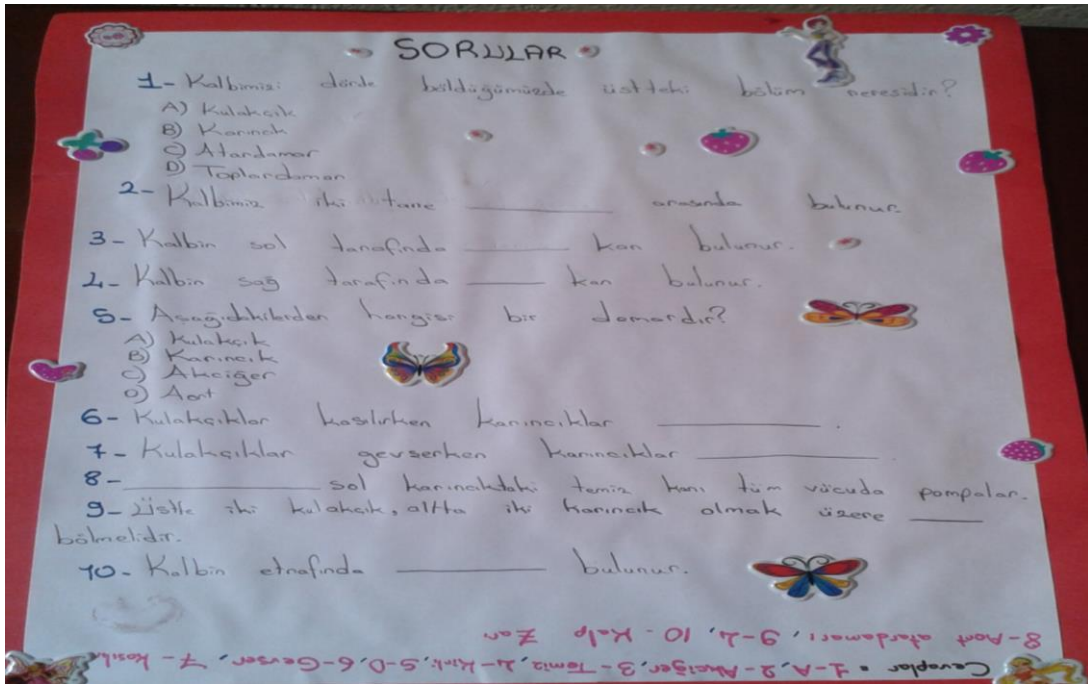 SORULAR
1- Kalbimizi dörde böldüğümüzde üstteki bölüm neresidir?
A) Kulakçık
B) Karıncık
C) Atardamar
D) Toplardamar
2- Kalbimiz iki tane ________ arasında bulunur.
3- Kalbin sol tarafında ________ kan bulunur.
4- Kalbin sağ tarafında ________ kan bulunur.
5- Aşağıdakilerden hangisi bir damardır?
A) Kulakçık
B) Karıncık
C) Akciğer
D) Aort
6- Kulakçıklar kasılırken karıncıklar ________.
7- Kulakçıklar gevşerken karıncıklar ________.
8- ________ sol karıncıktaki temiz kanı tüm vücuda pompalar.
9- Üstte iki kulakçık, altta iki karıncık olmak üzere ________
bölmelidir.
10- Kalbin etrafında ________ bulunur.
Cevaplar = 1-A, 2-Akciğer, 3-Temiz, 4-Kirli, 5-D, 6-Gevşer, 7-Kasılır
8-Aort atardamarı, 9-4, 10-Kalp Zarı